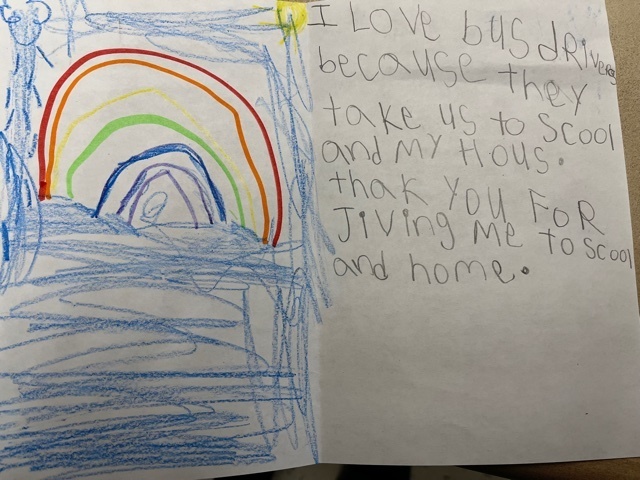 I LOVE bus dRivers
because they
take us to scool
and MY Hous.
thak YOU FOR
Jiving Me to scool
and home.